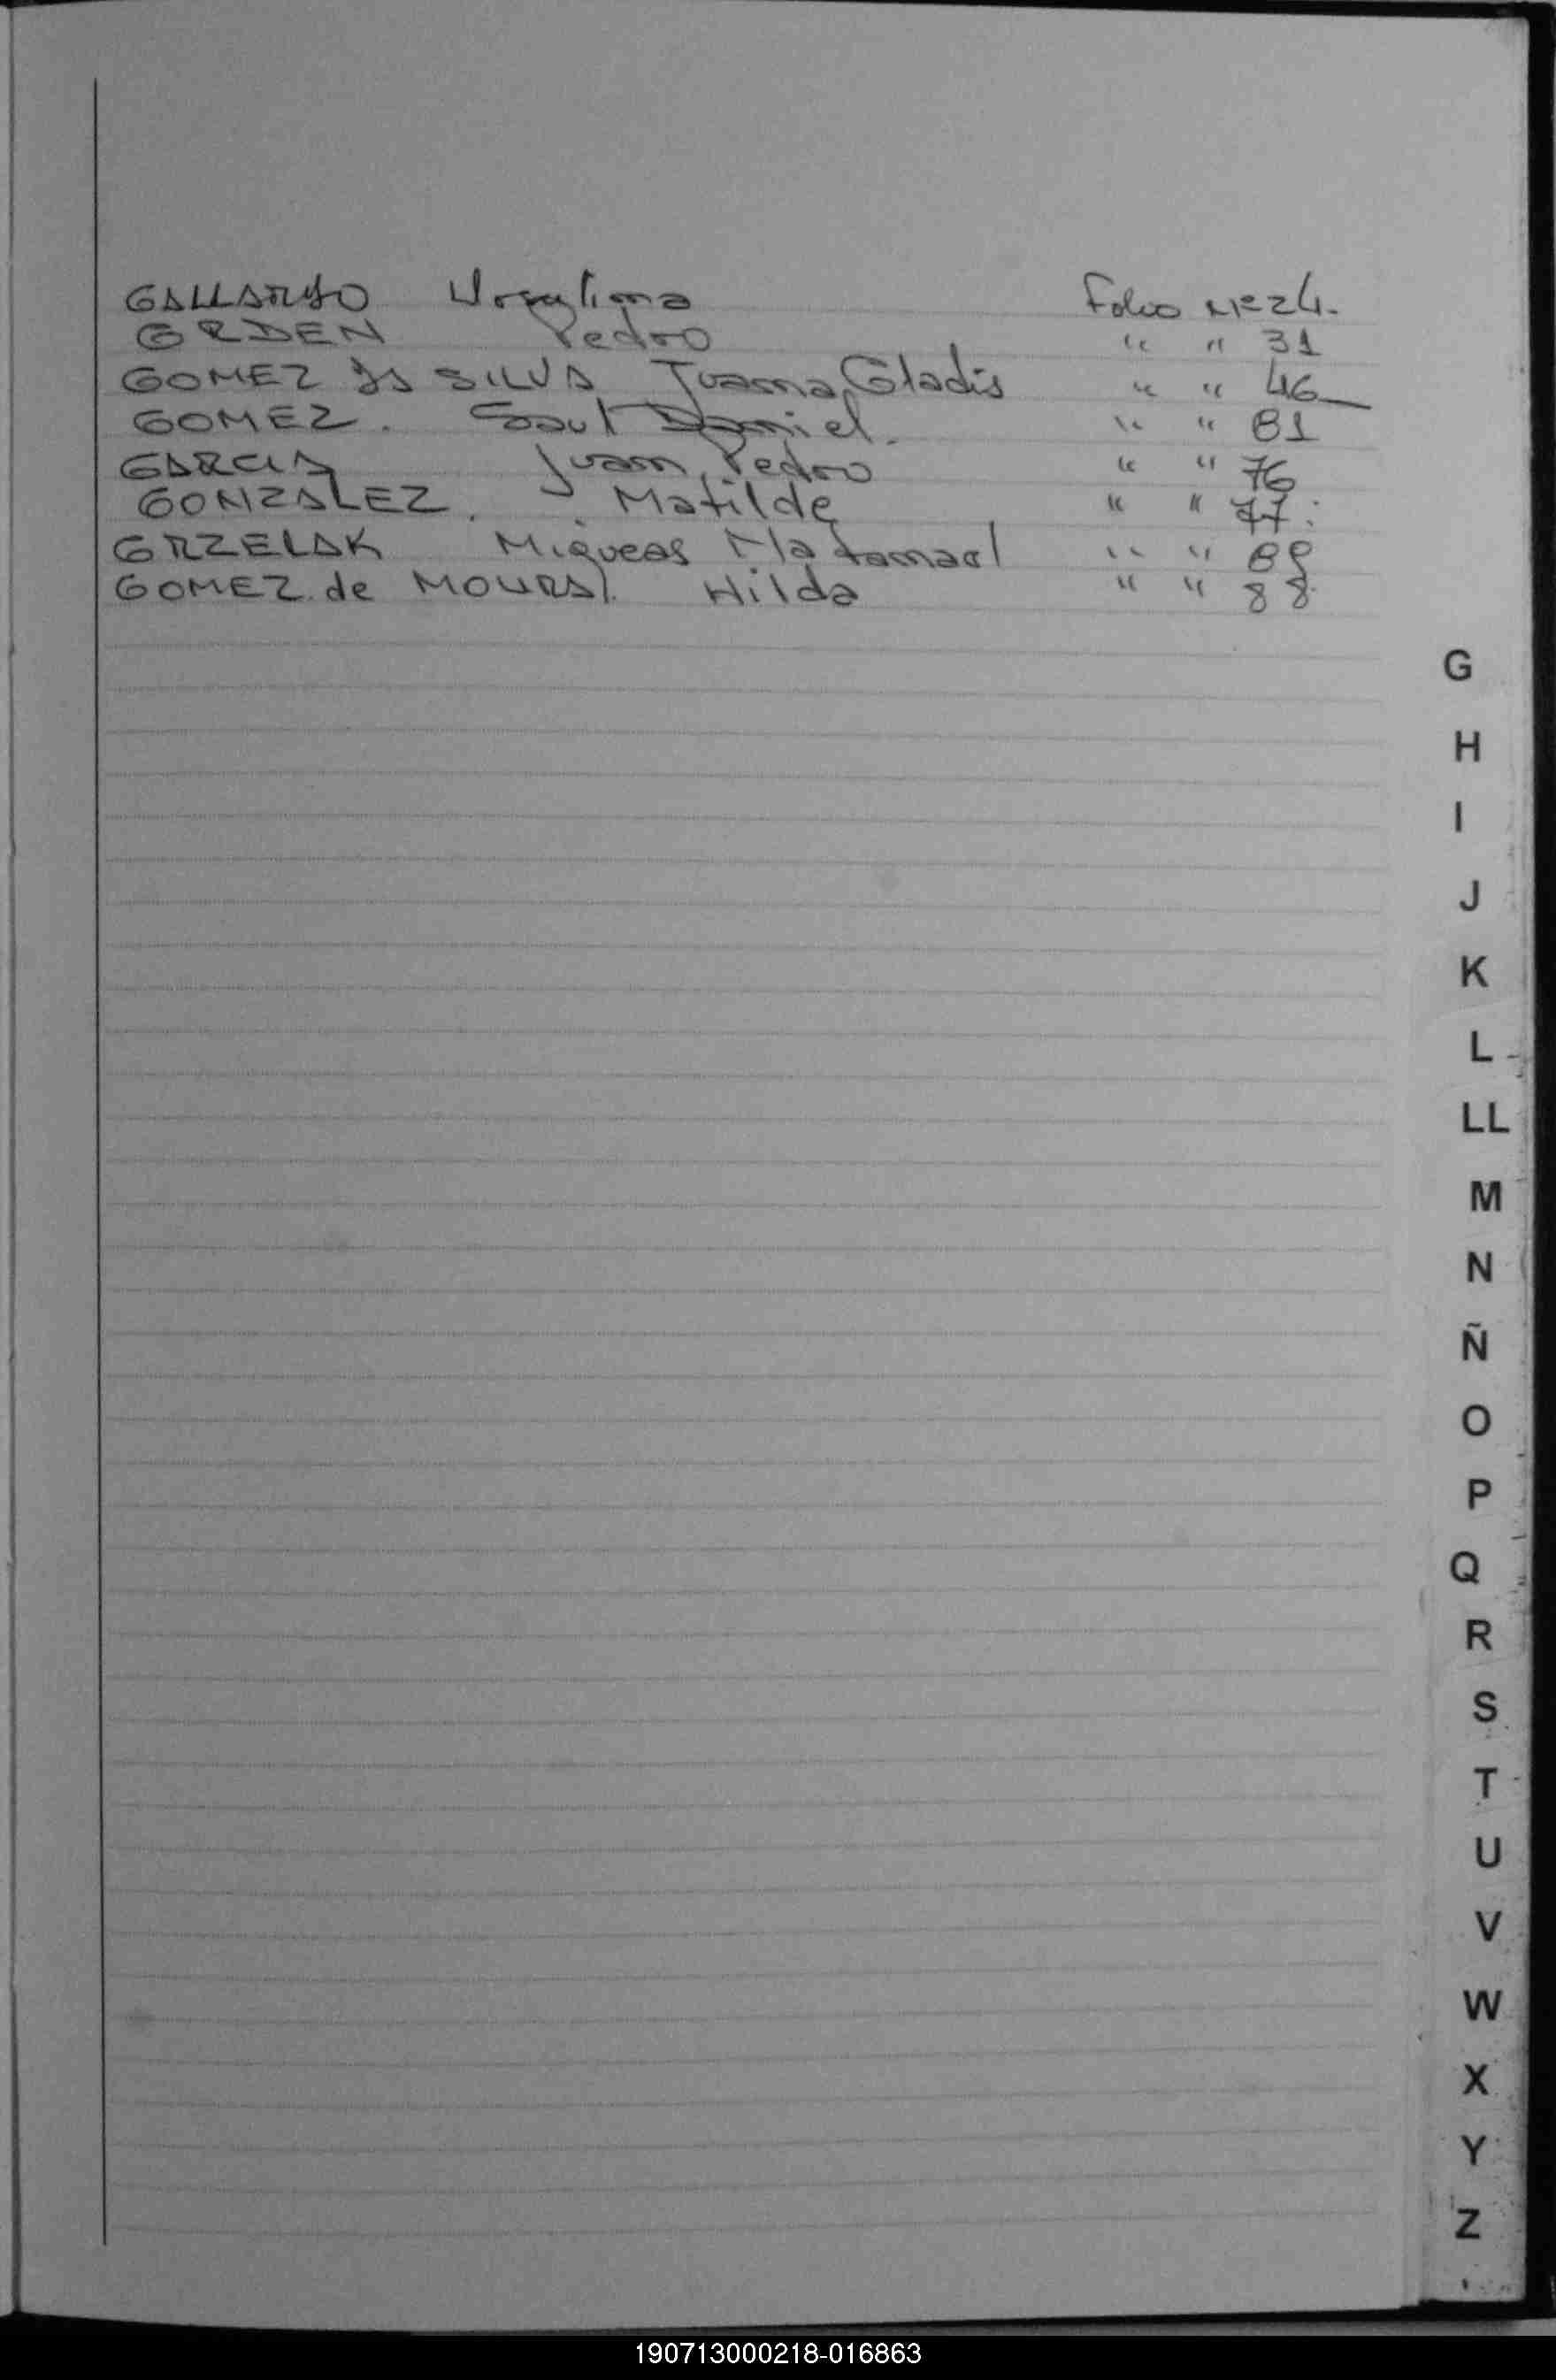 GALLARDO Folio Nº 24.
GRDEN Pedro " " 31
GOMEZ SILVA Juana Gladis " " 46
GOMEZ. Saul Daniel. " " 61
GARCIA Juan Pedro " " 76
GONZALEZ. Matilde " " 77.
GRZELAK Miqueas " "
GOMEZ de MOURA. Hilda " " 88
G
H
I
J
K
L
LL
M
N
Ñ
O
P
Q
R
S
T
U
V
W
X
Y
Z
190713000218-016863